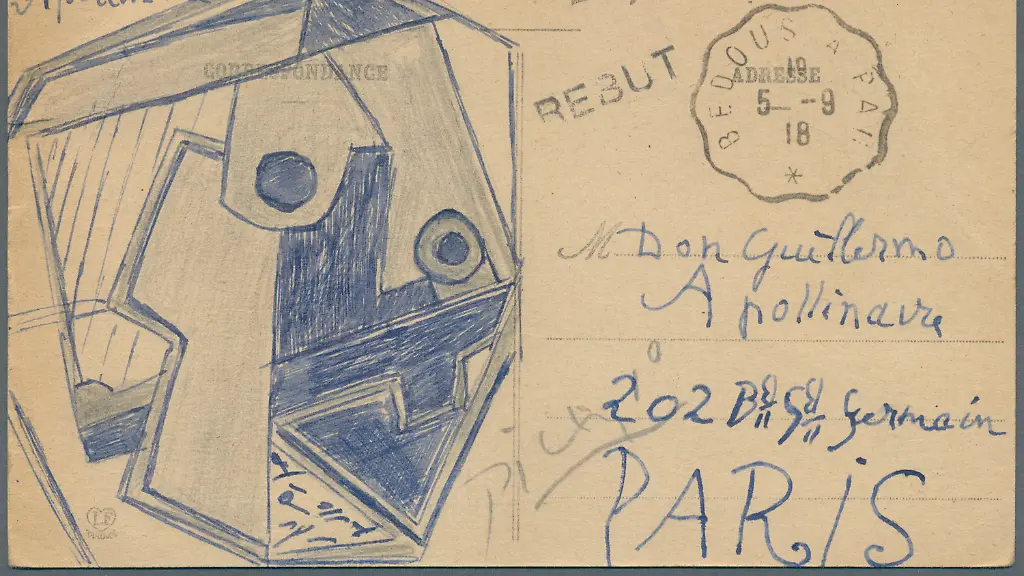 CORRESPONDANCE
REBUT
BEDOUS A
ADRESSE
5 -9
18
M Don Guillermo
Apollinaire
202 Bd St Germain
PARIS